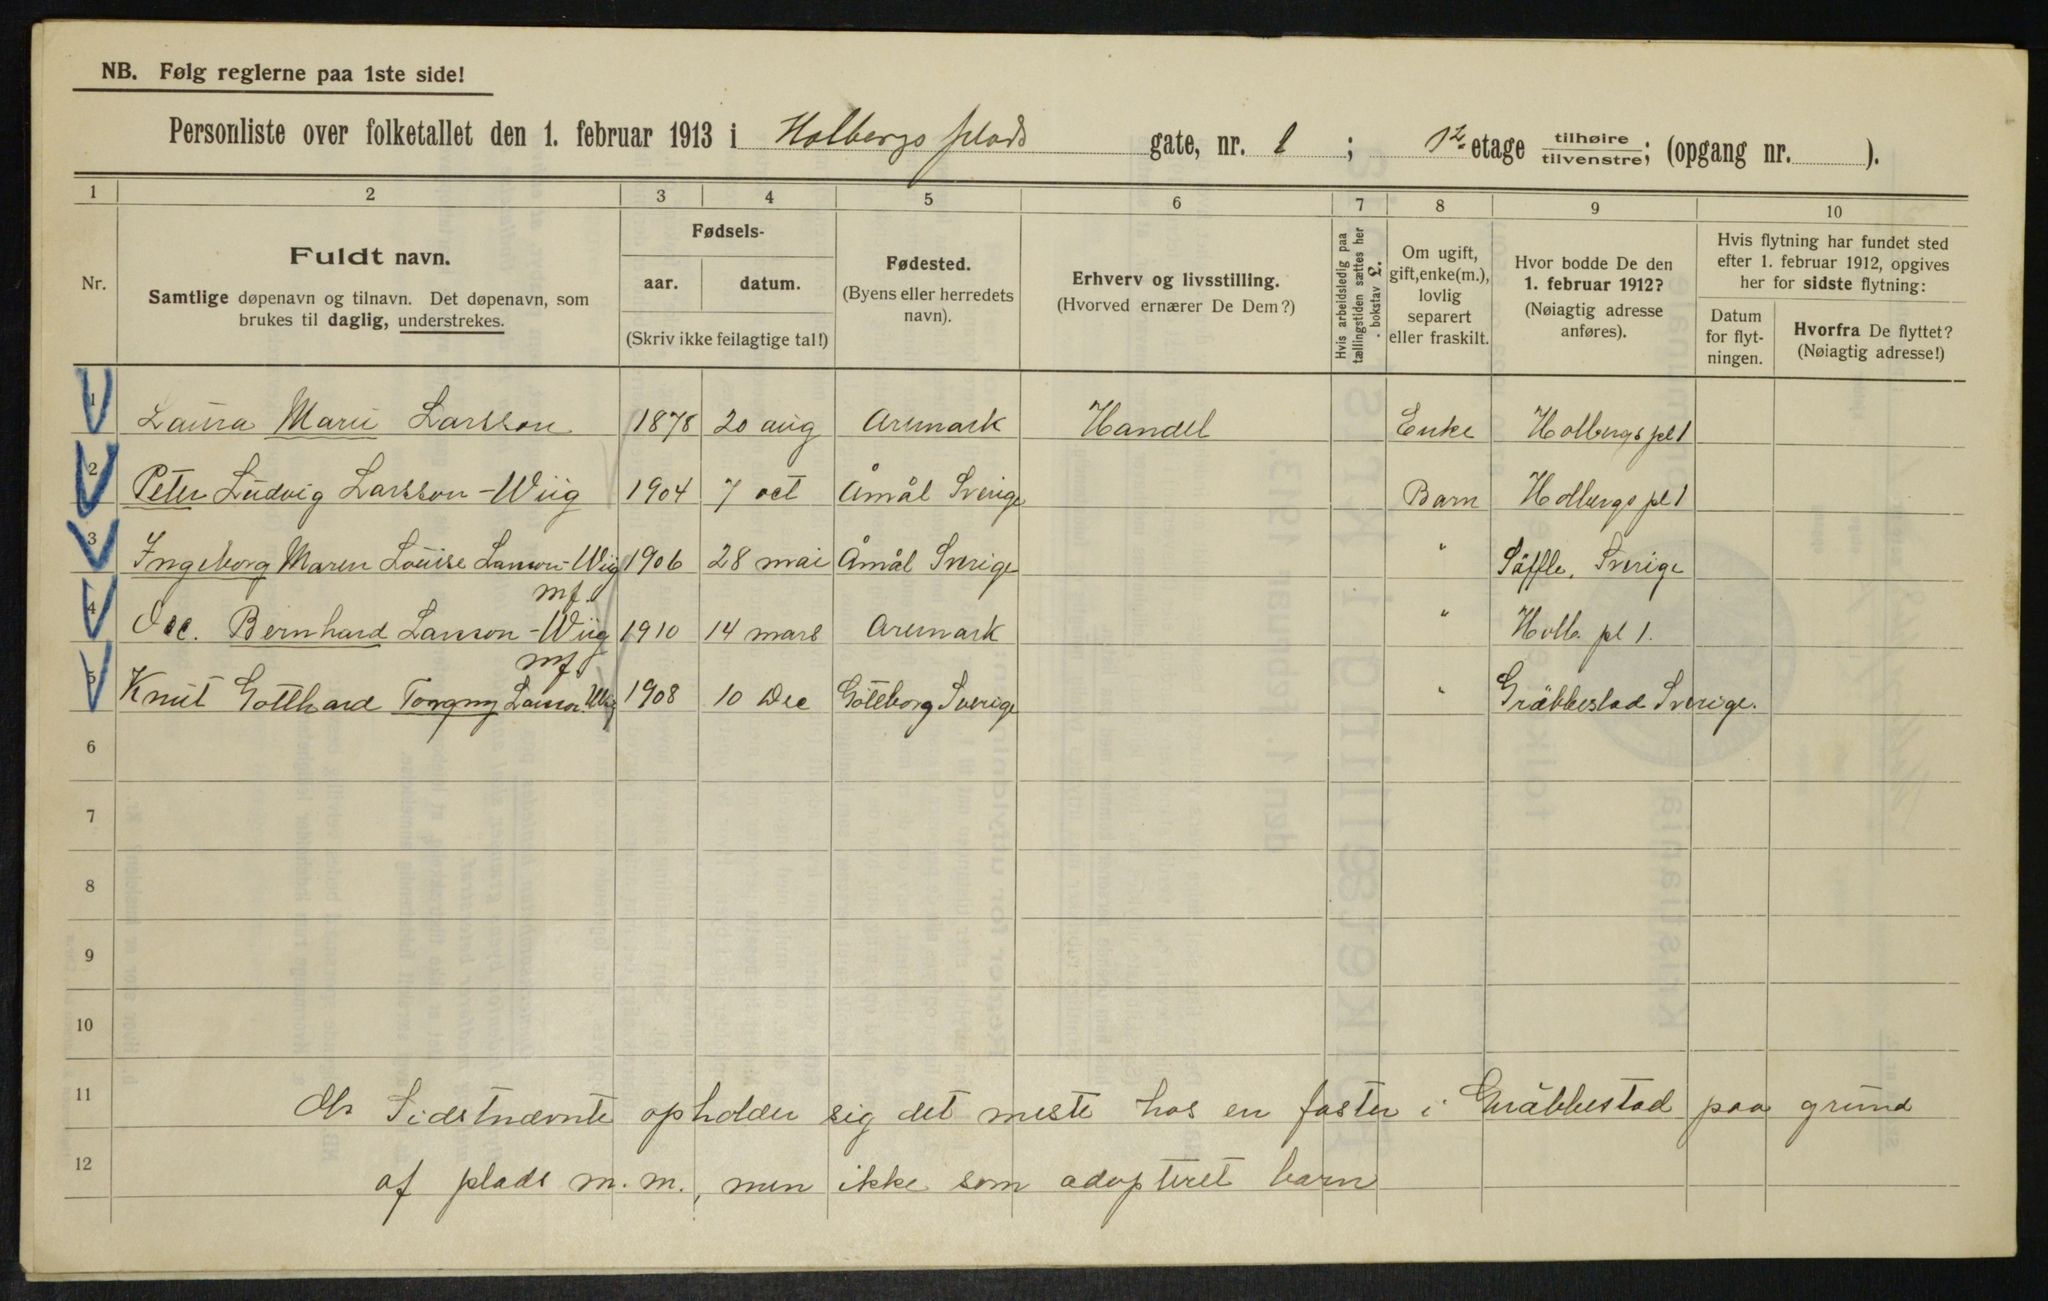 NB. Følg reglerne paa 1ste side!
Personliste over folketallet den 1. februar 1913 i Holbergs plads gate, nr. 1 ; 1ste etage tilhøire tilvenstre; (opgang nr. ).
1 2 3 4 5 6 7 8 9 10
Nr.
Fuldt navn.
Samtlige døpenavn og tilnavn. Det døpenavn, som
brukes til daglig, understrekes.
Fødsels-
aar. datum.
(Skriv ikke feilagtige tal!)
Fødested.
(Byens eller herredets
navn).
Erhverv og livsstilling.
(Hvorved ernærer De Dem?)
Hvis arbeidsledig paa
tællingstiden sættes her
bokstav L.
Om ugift,
gift, enke(m.),
lovlig
separert
eller fraskilt.
Hvor bodde De den
1. februar 1912?
(Nøiagtig adresse
anføres).
Hvis flytning har fundet sted
efter 1. februar 1912, opgives
her for sidste flytning:
Datum
for flyt-
ningen.
Hvorfra De flyttet?
(Nøiagtig adresse!)
1 Laura Marie Larsson 1878 20 aug Aremark Handel Enke Holbergs pl 1
2 Peter Ludvig Larsson-Wiig 1904 7 oct Åmål Sverige Barn Holbergs pl 1
3 Ingeborg Maren Louise Larsson-Wiig 1906 28 mai Åmål Sverige " Säffle, Sverige
mf.
4 Bernhard Larsson-Wiig 1910 14 mars Aremark " Holb. pl 1.
mf
5 Knut Gotthard Torgny Larsson Wiig 1908 10 Dec Göteborg Sverige " Gräbbestad Sverige.
6
7
8
9
10
11 Sidstnævnte opholder sig det meste hos en faster i Gräbbestad paa grund
12 af plads m. m., men ikke som adopteret barn